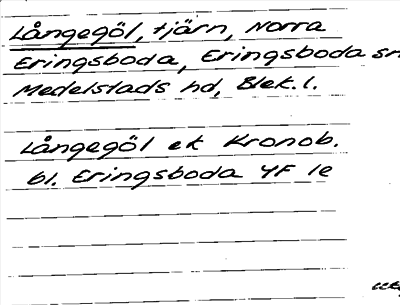 Långegöl, tjärn, Norra
Eringsboda, Eringsboda sn
Medelstads hd, Blek. l.
Långegöl ek Kronob.
bl. Eringsboda 4F 1e